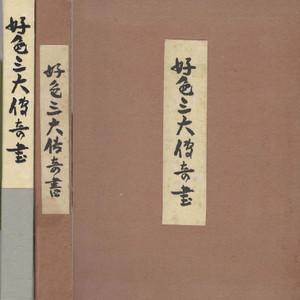 好色三大傳奇書
好色三大传奇書
好色三大傳奇書